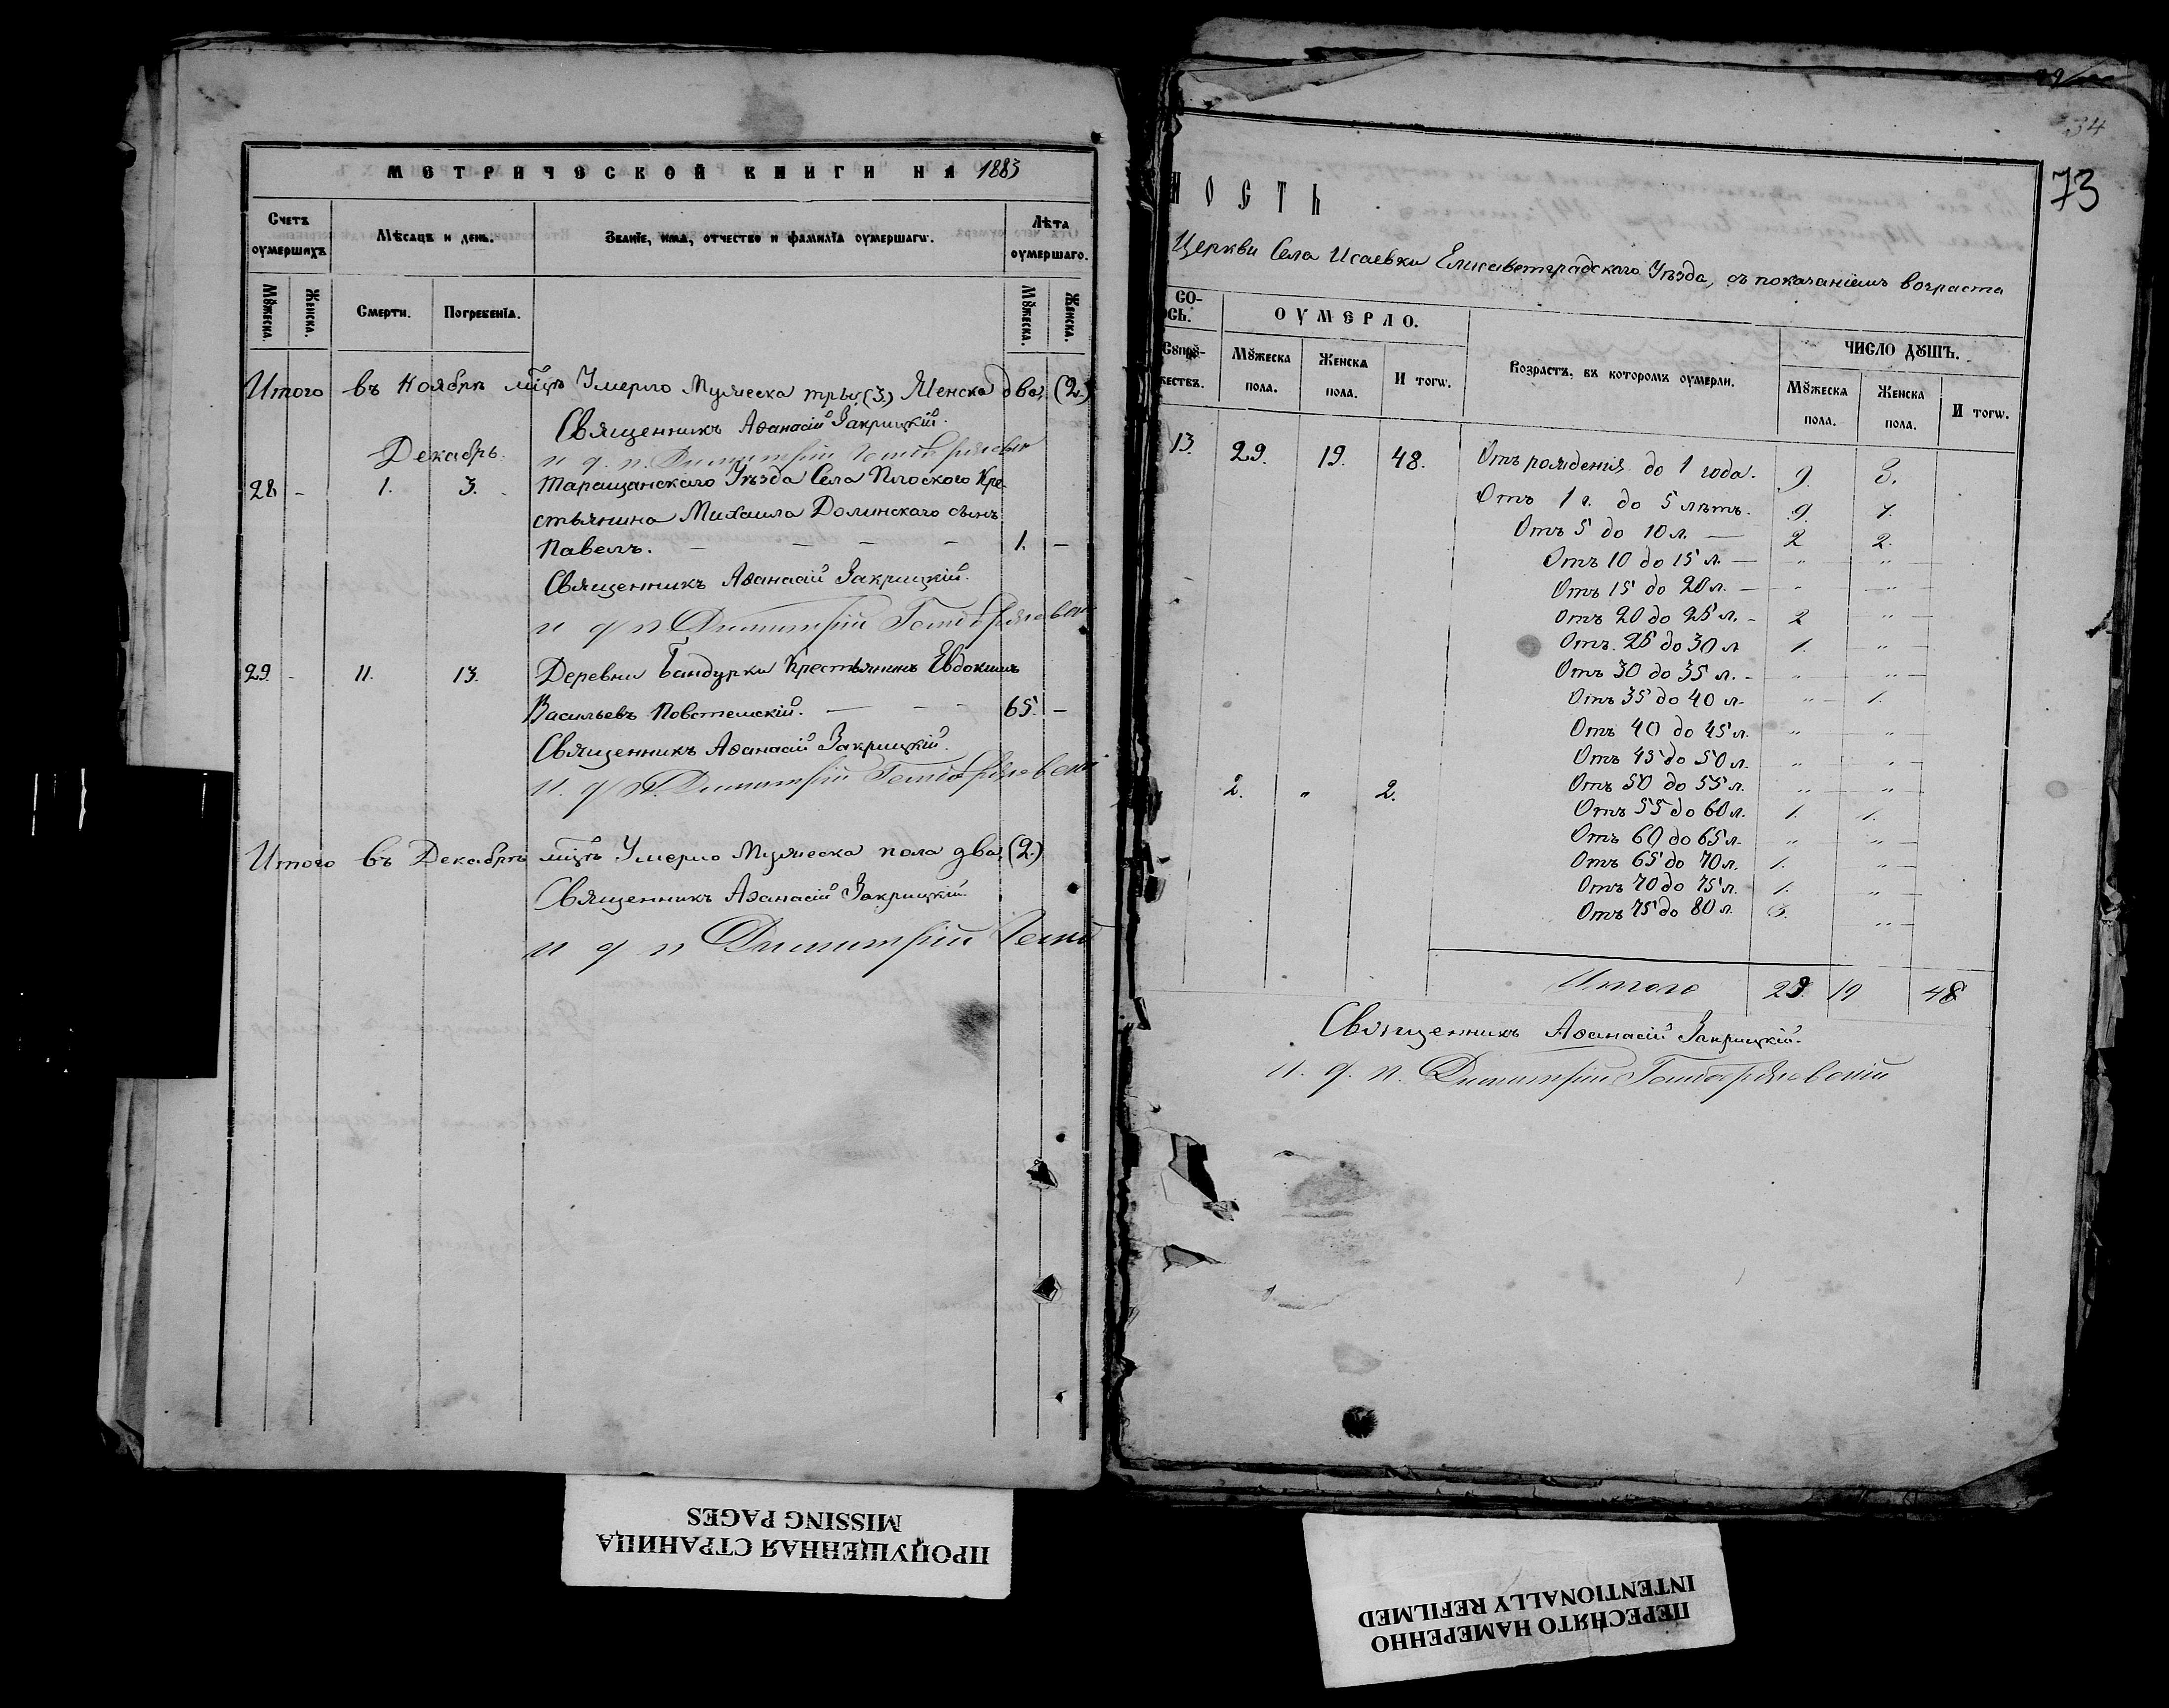 МЕТРИЧЕСКОЙ КНИГИ НА 1883
Счетъ оумершихъ
Мѣсацъ и день.
Званїе, има, отчество и фамилїа оумершагѡ.
Лѣта оумершаго.
Мꙋжеска.
Женска.
Смерти.
Погребенїа.
Мꙋжеска.
Женска.
Итого въ Ноябрѣ мѣцѣ Умерло Мужеска три (3.) Женска два, (2.)
Священникъ Аѳанасій Закрицкій.
Декабрь.
и д. п. Димитрій
28 - 1. 3. Таращанскаго Уѣзда Села Плоского Кре-
стьянина Михаила Долинскаго сынъ
Павелъ. — — — — 1. —
Священникъ Аѳанасій Закрицкій.
и д п Димитрій
29. - 11. 13. Деревни Бандурки Крестьянинъ Евдокимъ
Васильевъ Повстемскій. — — — 65. —
Священникъ Аѳанасій Закрицкій.
и. д. п. Димитрій
Итого въ Декабрѣ мѣцѣ Умерло Мужеска пола два, (2.)
Священникъ Аѳанасій Закрицкій.
и д п Димитрій
34
73
НОСТЬ
Церкви Села Исаевки Елисаветградского Уѣзда, съ показаніемъ возраста
СО-
ОСЬ.
ОУМЕРЛО.
Возрастъ, въ которомъ оумерли.
ЧИСЛО ДꙊШЪ.
Сꙋпрꙋ-
жествъ.
Мꙋжеска пола.
Женска пола.
И тогѡ.
Мꙋжеска пола.
Женска пола.
И тогѡ.
13. 29. 19. 48. Отъ рожденія до 1 года. 9. 8.
Отъ 1 г. до 5 лѣтъ. 9. 7.
Отъ 5 до 10 л. — 2 2.
Отъ 10 до 15 л. — „ „ —
Отъ 15 до 20 л. — „ „ —
Отъ 20 до 25 л. - 2 „ —
Отъ 25 до 30 л 1. „ —
Отъ 30 до 35 л. - „ „ —
Отъ 35 до 40 л- „ 1.
Отъ 40 до 45 л. „ „ —
Отъ 45 до 50 л. „ „ —
2. „ 2. Отъ 50 до 55 л. „ „ —
Отъ 55 до 60 л. 1. 1.
Отъ 60 до 65 л. „ „ —
Отъ 65 до 70 л. 1. „ —
Отъ 70 до 75 л. 1. „ —
Отъ 75 до 80 л. 3. „ —
Итого 29. 19 48
Священникъ Аѳанасій Закрицкій.
и. д. п. Димитрій
ПРОПУЩЕННАЯ СТРАНИЦА
MISSING PAGES
ПЕРЕСНЯТО НАМЕРЕННО
INTENTIONALLY REFILMED